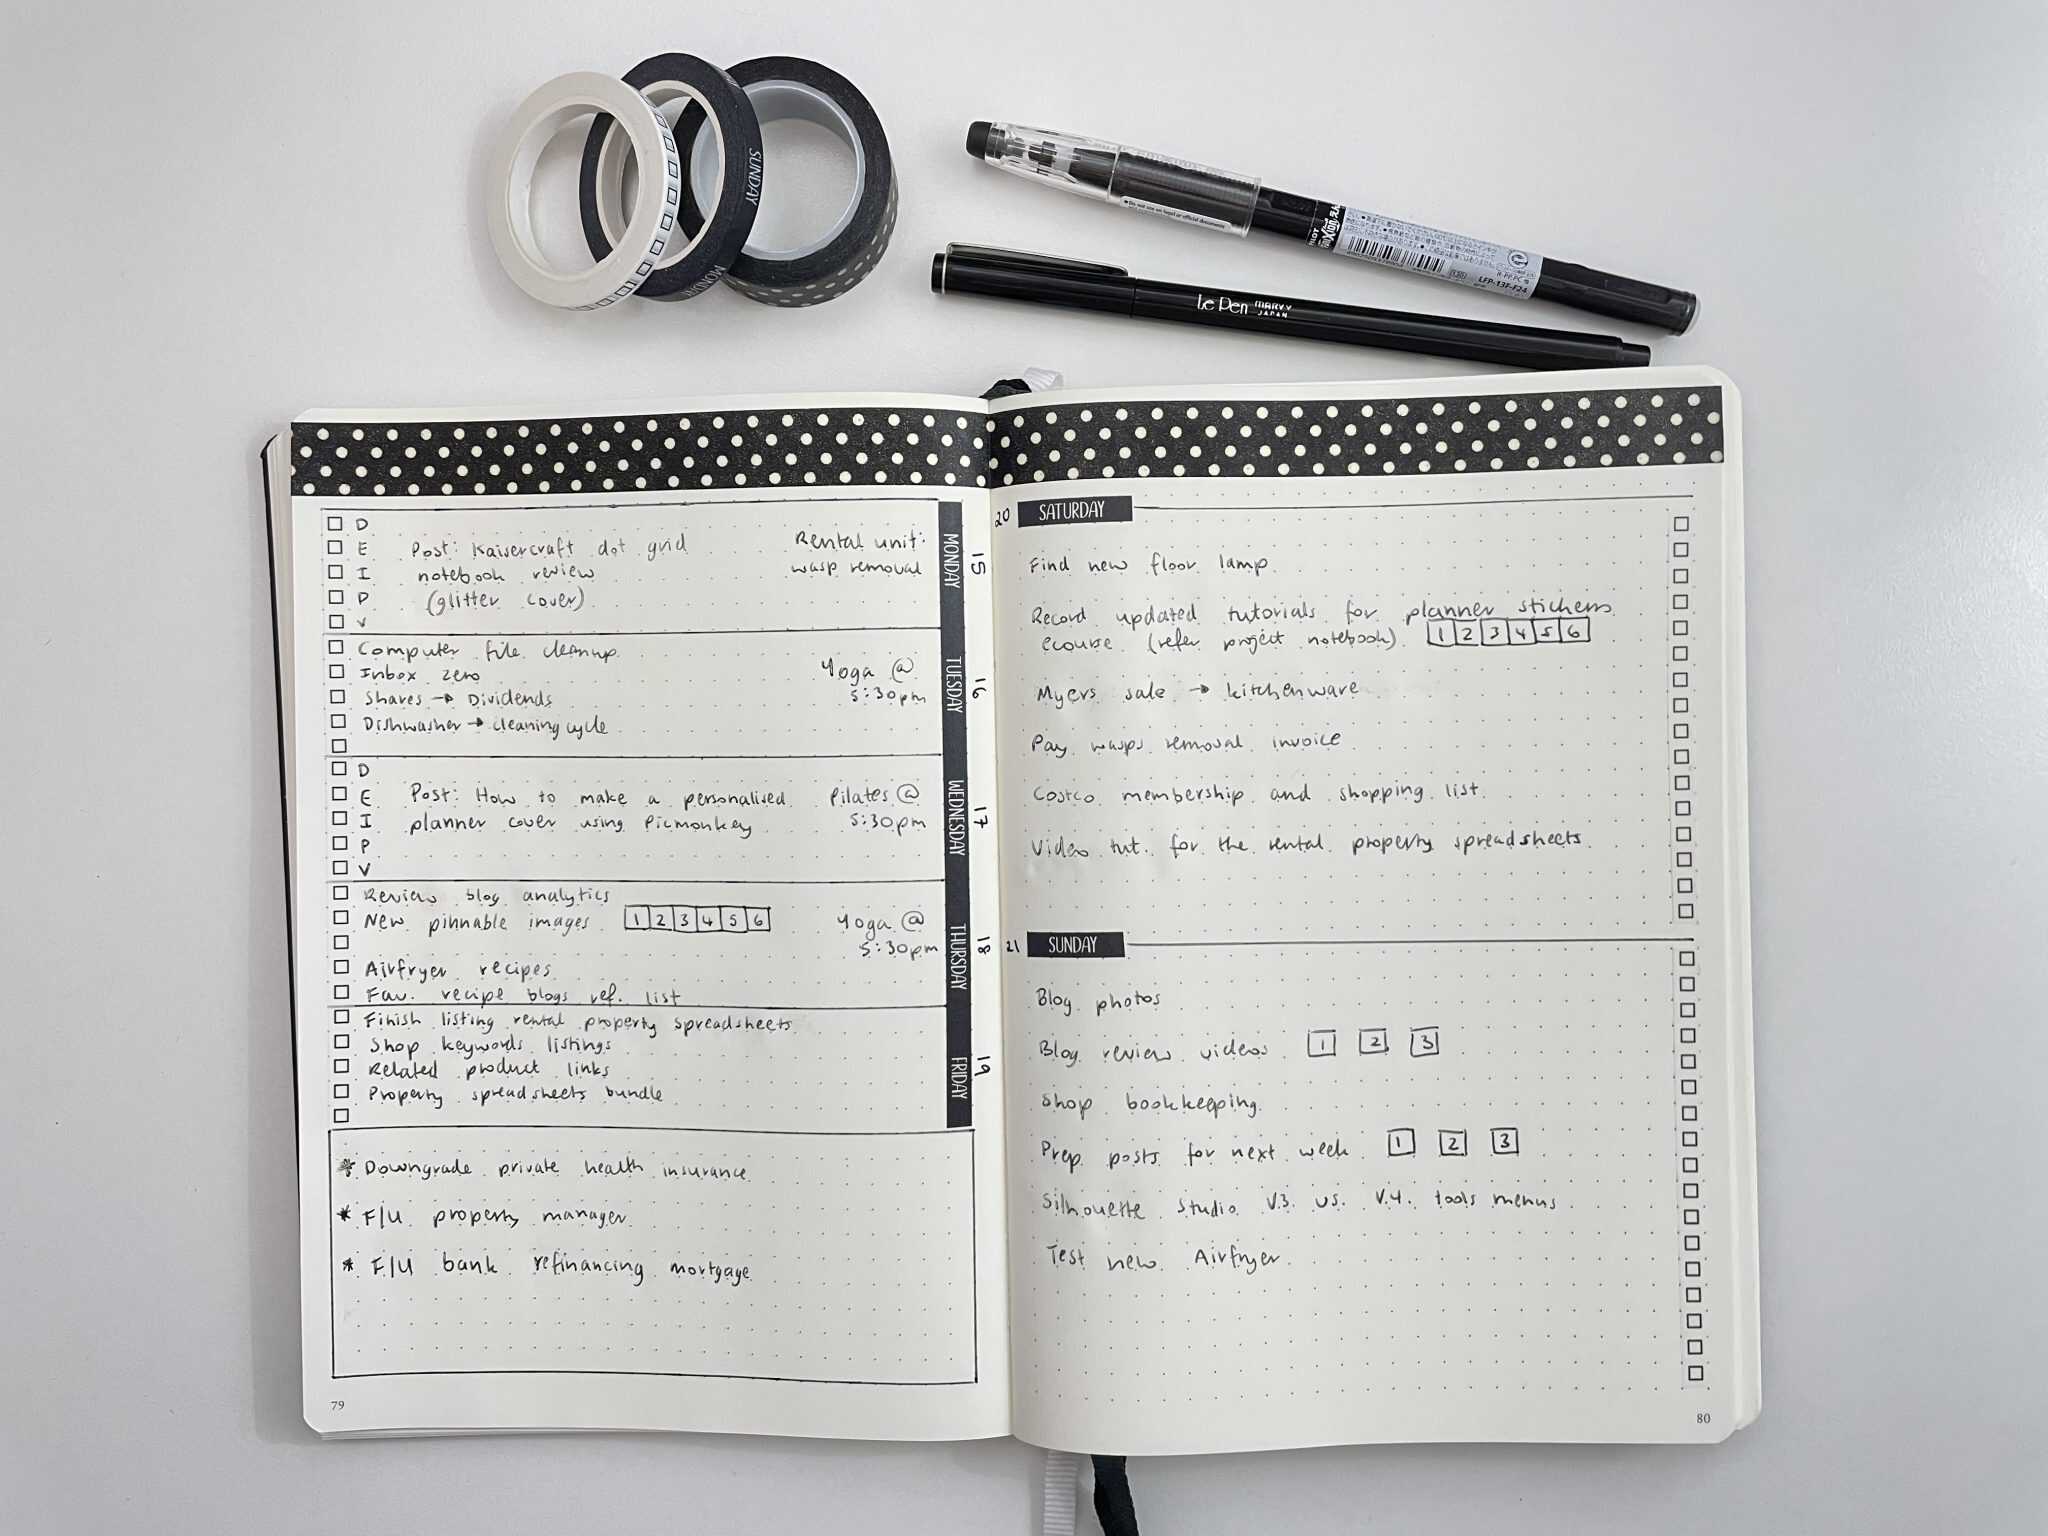 SUNDAY
MONDAY
Do not use on legal or official documents
PILOT
FriXion
LFP-13F-F24
Le Pen MARVY
JAPAN
MONDAY 15
D
E Post: Kaisercraft dot grid
I notebook review
P (glitter cover)
V
Rental unit:
wasp removal
TUESDAY 16
Computer file cleanup
Inbox zero
Shares → Dividends
Dishwasher → cleaning cycle
Yoga @
5:30pm
WEDNESDAY 17
D
E Post: How to make a personalised
I planner cover using Picmonkey
P
V
Pilates @
5:30pm
THURSDAY 18
Review blog analytics
New pinnable images 1 2 3 4 5 6
Airfryer recipes
Fav. recipe blogs ref. list
Yoga @
5:30pm
FRIDAY 19
Finish listing rental property spreadsheets
Shop keywords listings
Related product links
Property spreadsheets bundle
* Downgrade private health insurance
* F/U property manager
* F/U bank refinancing mortgage
79
20 SATURDAY
Find new floor lamp
Record updated tutorials for planner stickers
ecourse (refer project notebook) 1 2 3 4 5 6
Myers sale → kitchenware
Pay wasps removal invoice
Costco membership and shopping list
Video tut. for the rental property spreadsheets
21 SUNDAY
Blog photos
Blog review videos 1 2 3
Shop bookkeeping
Prep posts for next week 1 2 3
Silhouette Studio V.3 vs. V.4. tools menus
Test new Airfryer
80